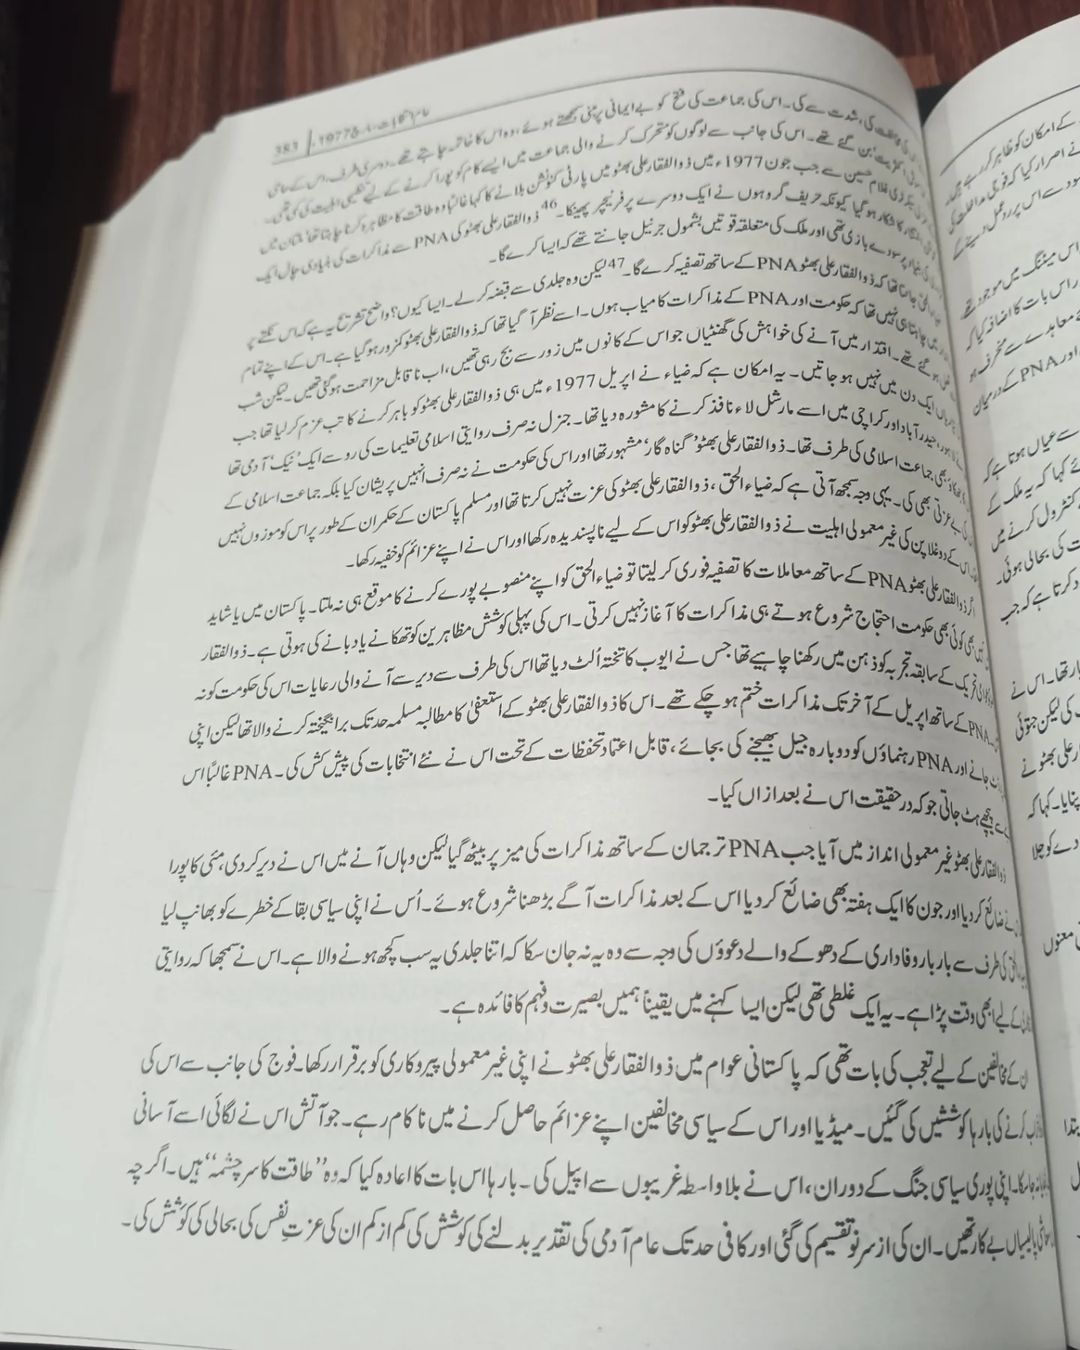 عام انتخابات، 1977ء | 383
کی، شدت سے کی۔ اس کی جماعت کی فتح کو بے ایمانی پر مبنی سمجھتے ہوئے، وہ اس کا خاتمہ چاہتے تھے۔ دوسری طرف، اس کے سامی
بن گئے تھے۔ اس کی جانب سے لوگوں کو متحرک کرنے والی جماعت میں ایسے کام کو پورا کرنے کے لیے تنظیمی اہلیت کی کمی تھی۔
غلام حسین سے جب جون 1977ء میں ذوالفقار علی بھٹو میں پارٹی کنونشن بلانے کا کہا غالباً وہ طاقت کا مظاہرہ کرنا چاہتا تھا، ملتان میں
کا شکار ہو گیا کیونکہ حریف گروہوں نے ایک دوسرے پر فرنیچر پھینکا۔46 ذوالفقار علی بھٹو کی PNA سے مذاکرات کی بنیادی چال ایک
پر سودے بازی تھی اور ملک کی متعلقہ قوتیں بشمول جرنیل جانتے تھے کہ ایسا کرے گا۔
جانتا تھا کہ ذوالفقار علی بھٹو PNA کے ساتھ تصفیہ کرے گا۔47 لیکن وہ جلدی سے قبضہ کر لے۔ ایسا کیوں؟ واضح تشریح یہ ہے کہ اس نکتے پر
چاہتا ہی نہیں تھا کہ حکومت اور PNA کے مذاکرات کامیاب ہوں۔ اسے نظر آ گیا تھا کہ ذوالفقار علی بھٹو کمزور ہو گیا ہے۔ اس کے اپنے تمام
ہو گئے تھے۔ اقتدار میں آنے کی خواہش کی گھنٹیاں جو اس کے کانوں میں زور سے بج رہی تھیں، اب ناقابل مزاحمت ہو گئی تھیں۔ لیکن شب
ایک دن میں نہیں ہو جاتیں۔ یہ امکان ہے کہ ضیاء نے اپریل 1977ء میں ہی ذوالفقار علی بھٹو کو باہر کرنے کا تب عزم کر لیا تھا جب
حیدر آباد اور کراچی میں اسے مارشل لاء نافذ کرنے کا مشورہ دیا تھا۔ جنرل نہ صرف روایتی اسلامی تعلیمات کی رو سے ایک 'نیک' آدمی تھا
بھی جماعت اسلامی کی طرف تھا۔ ذوالفقار علی بھٹو 'گناہ گار' مشہور تھا اور اس کی حکومت نے نہ صرف انہیں پریشان کیا بلکہ جماعت اسلامی کے
کی بے عزتی بھی کی۔ یہی وجہ سمجھ آتی ہے کہ ضیاء الحق، ذوالفقار علی بھٹو کی عزت نہیں کرتا تھا اور مسلم پاکستان کے حکمران کے طور پر اس کو موزوں نہیں
اس کے دوغلا پن کی غیر معمولی اہلیت نے ذوالفقار علی بھٹو کو اس کے لیے ناپسندیدہ رکھا اور اس نے اپنے عزائم کو خفیہ رکھا۔
اگر ذوالفقار علی بھٹو PNA کے ساتھ معاملات کا تصفیہ فوری کر لیتا تو ضیاء الحق کو اپنے منصوبے پورے کرنے کا موقع ہی نہ ملتا۔ پاکستان میں یا شاید
بھی کوئی بھی حکومت احتجاج شروع ہوتے ہی مذاکرات کا آغاز نہیں کرتی۔ اس کی پہلی کوشش مظاہرین کو تھکانے یا دبانے کی ہوتی ہے۔ ذوالفقار
تحریک کے سابقہ تجربہ کو ذہن میں رکھنا چاہیے تھا جس نے ایوب کا تختہ اُلٹ دیا تھا اس کی طرف سے دیر سے آنے والی رعایات اس کی حکومت کو نہ
PNA کے ساتھ اپریل کے آخر تک مذاکرات ختم ہو چکے تھے۔ اس کا ذوالفقار علی بھٹو کے استعفیٰ کا مطالبہ مسلمہ حد تک برانگیختہ کرنے والا تھا لیکن اپنی
جانے اور PNA رہنماؤں کو دوبارہ جیل بھیجنے کی بجائے، قابل اعتماد تحفظات کے تحت اس نے نئے انتخابات کی پیش کش کی۔ PNA غالباً اس
سے پیچھے ہٹ جاتی جو کہ درحقیقت اس نے بعد ازاں کیا۔
ذوالفقار علی بھٹو غیر معمولی انداز میں آیا جب PNA ترجمان کے ساتھ مذاکرات کی میز پر بیٹھ گیا لیکن وہاں آنے میں اس نے دیر کر دی، مئی کا پورا
ضائع کر دیا اور جون کا ایک ہفتہ بھی ضائع کر دیا اس کے بعد مذاکرات آگے بڑھنا شروع ہوئے۔ اُس نے اپنی سیاسی بقا کے خطرے کو بھانپ لیا
کی طرف سے بار بار وفاداری کے دھوکے والے دعوؤں کی وجہ سے وہ یہ نہ جان سکا کہ اتنا جلدی یہ سب کچھ ہونے والا ہے۔ اس نے سمجھا کہ روایتی
کے لیے ابھی وقت پڑا ہے۔ یہ ایک غلطی تھی لیکن ایسا کہنے میں یقیناً ہمیں بصیرت و فہم کا فائدہ ہے۔
ان کے مخالفین کے لیے تعجب کی بات تھی کہ پاکستانی عوام میں ذوالفقار علی بھٹو نے اپنی غیر معمولی پیروکاری کو برقرار رکھا۔ فوج کی جانب سے اس کی
کرنے کی بارہا کوششیں کی گئیں۔ میڈیا اور اس کے سیاسی مخالفین اپنے عزائم حاصل کرنے میں ناکام رہے۔ جو آتش اس نے لگائی اسے آسانی
نہ جا سکا۔ اپنی پوری سیاسی جنگ کے دوران، اس نے بلاواسطہ غریبوں سے اپیل کی۔ بارہا اس بات کا اعادہ کیا کہ وہ "طاقت کا سرچشمہ" ہیں۔ اگرچہ
پالیسیاں بے کار تھیں۔ ان کی از سر نو تقسیم کی گئی اور کافی حد تک عام آدمی کی تقدیر بدلنے کی کوشش کی کم از کم ان کی عزتِ نفس کی بحالی کی کوشش کی۔
کے امکان کو ظاہر کر رہے
نے اصرار کیا کہ فوجی مداخلت کی
اس میٹنگ میں موجود تھے
اس بات کا اضافہ کیا کہ
معاہدے سے منحرف ہو
اور PNA کے درمیان
سے عیاں ہوتا ہے کہ
کہا کہ یہ ملک کے
کنٹرول کرنے میں
کی بحالی ہوئی۔
کرتا ہے کہ جب
تھا۔ اس نے
کی لیکن جتوئی
علی بھٹو نے
پنایا۔ کہا کہ
معنوں